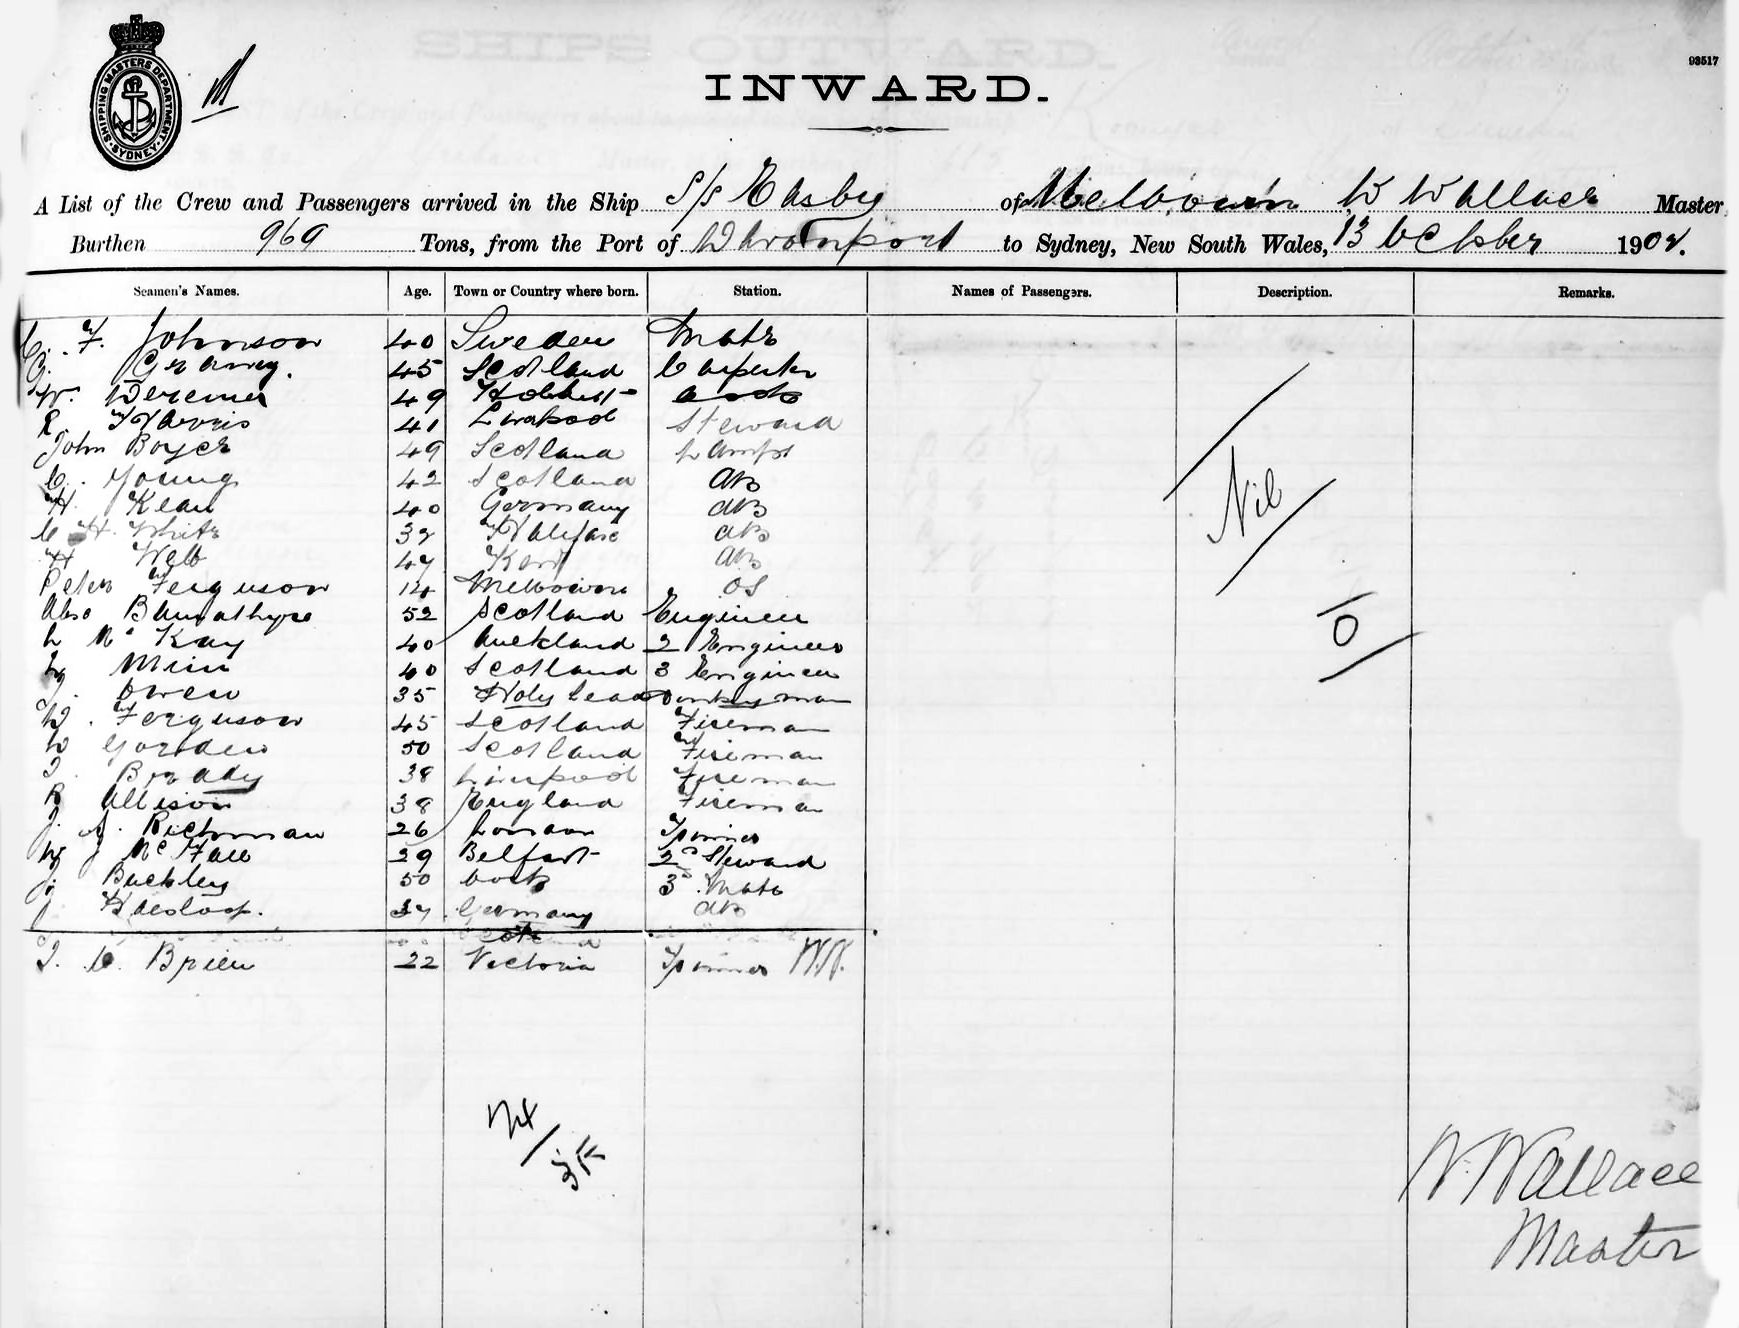 SHIPPING MASTERS DEPARTMENT. SYDNEY
93517
INWARD.
A List of the Crew and Passengers arrived in the Ship S/s Easby of Melbourn W Wallace Master
Burthen 969 Tons, from the Port of Davonport to Sydney, New South Wales, 13 October 1902.
Seamen's Names. Age. Town or Country where born. Station. Names of Passengers. Description. Remarks.
C. F. Johnson 40 Sweden Mate
G. 45 Scotland Carpenter
W. Deremer 49
R Harris 41 Liverpool Steward
John Boyer 49 Scotland Lamps
C. Young 42 Scotland AB
H. Kean 40 Germany AB
C H. White 32 Halifax AB
H Webb 47 Kent AB
Peter Ferguson 14 Melbourn OS
52 Scotland Engineer
Mc Kay 40 Auckland 2 Engineer
40 Scotland 3 Engineer
J. Owen 35 Holyhead Donkeyman
W. Ferguson 45 Scotland Fireman
W Gordon 50 Scotland 2nd Fireman
J. Brady 38 Liverpool Fireman
R Allison 38 England Fireman
J. A. Richman 26 London Trimmer
Mc Fall 29 Belfast 2nd Steward
J. Buckley 50 Cork 3rd Mate
37 Germany AB
J. O. Brien 22 Victoria Trimmer W.W.
Nil
0
W. Wallace
Master